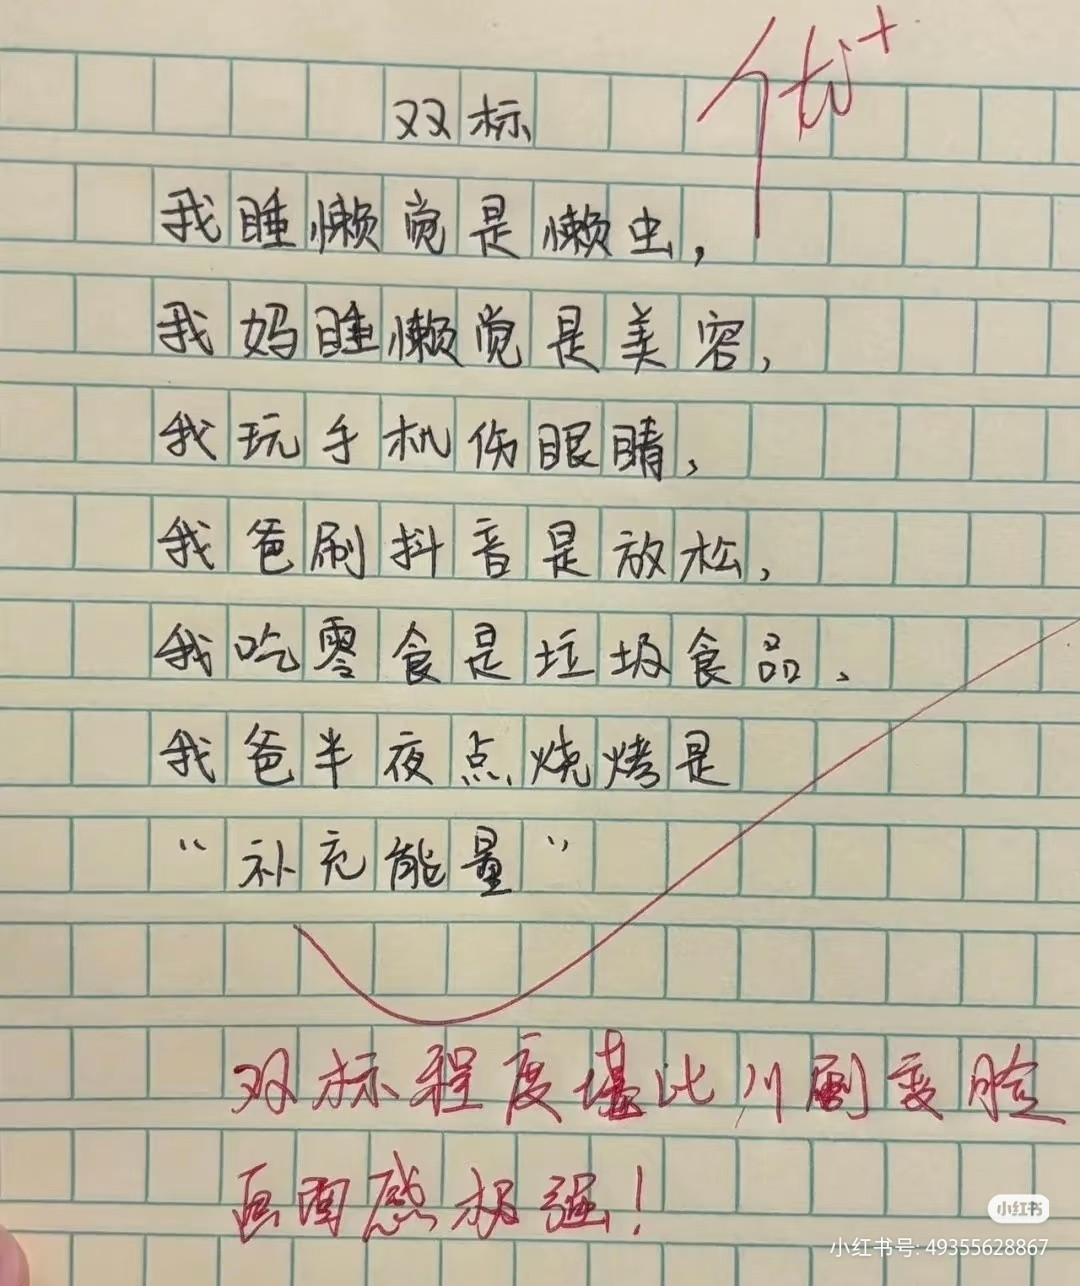 优+
双标
我睡懒觉是懒虫，
我妈睡懒觉是美容，
我玩手机伤眼睛，
我爸刷抖音是放松，
我吃零食是垃圾食品、
我爸半夜点烧烤是
“补充能量”
双标程度堪比川剧变脸
画面感极强！
小红书
小红书号: 49355628867